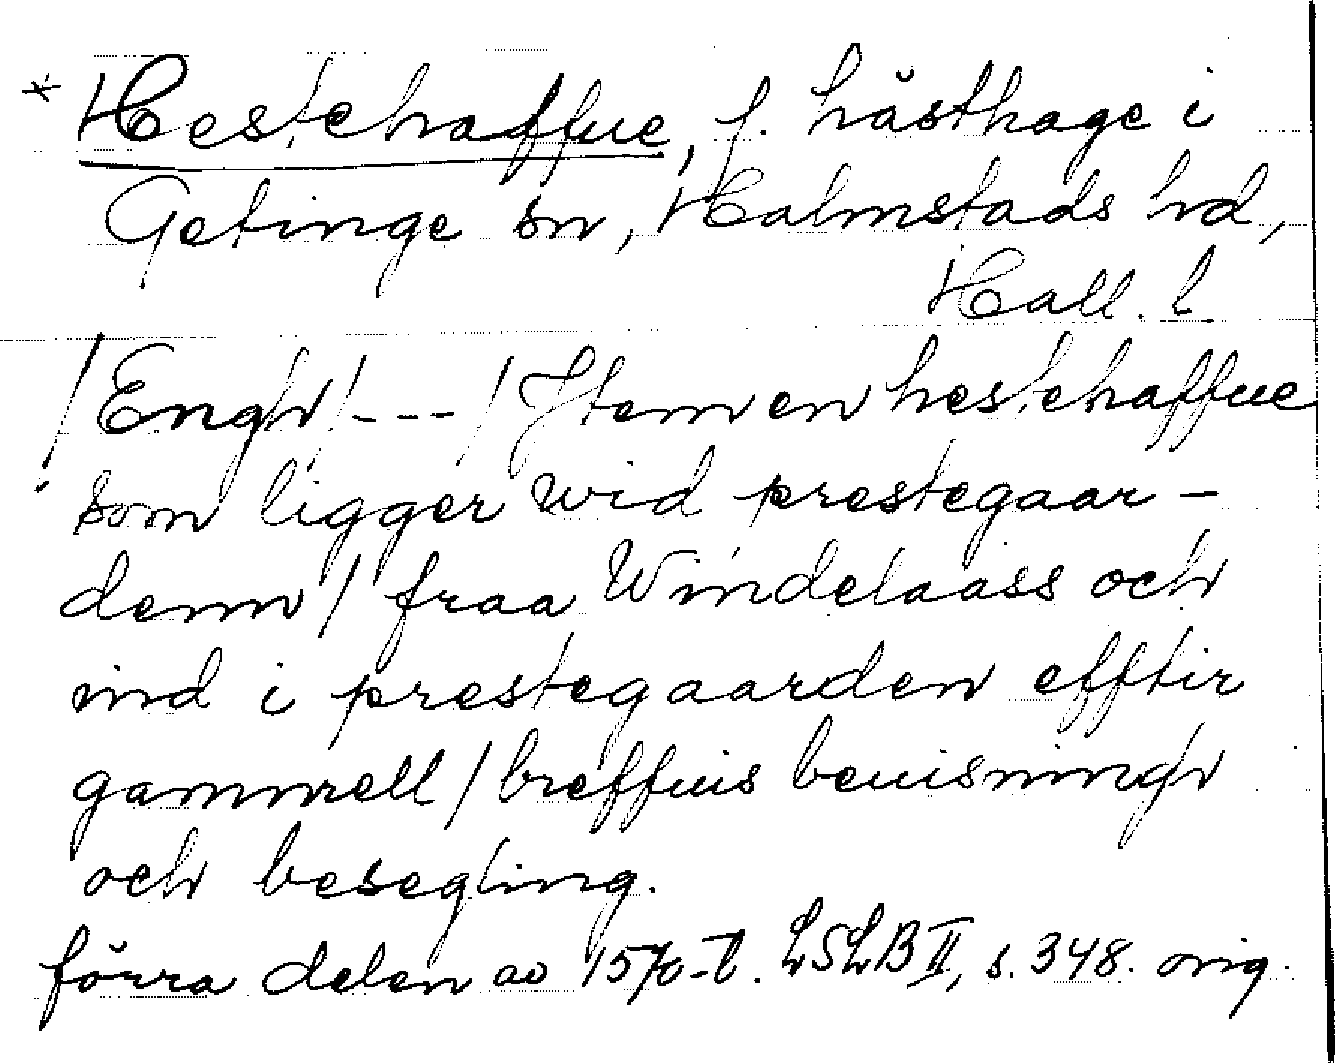 * Hestehaffue, f. hästhage i
Getinge sn, Halmstads hd,
Hall. l.
/Engh/---/Jtem en hestehaffue
som ligger wid prestegaar-
denn/ fraa Windelaass och
ind i prestegaarden efftir
gammell/breffuis beuisningh
och besegling.
förra delen av 1570-t. LSLB II, s. 348. orig.